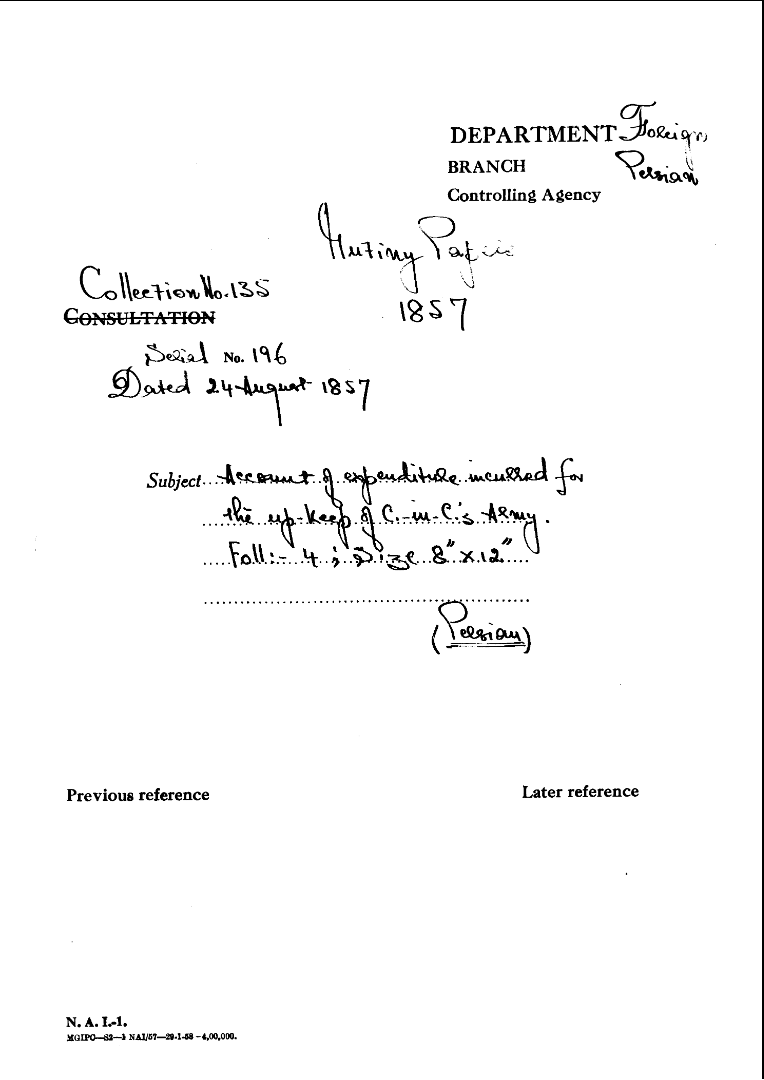 DEPARTMENT Foreign
BRANCH Persian
Controlling Agency
Mutiny Papers
1857
Collection No. 135
CONSULTATION
Serial No. 196
Dated 24 August 1857
Subject... Account of expenditure incurred for
the up-keep of C.-in-C.'s Army.
Foll:- 4 ; Size 8" x 12"
(Persian)
Previous reference Later reference
N. A. I.-1.
MGIPC—S2—3 NAI/57—29-1-58—4,00,000.